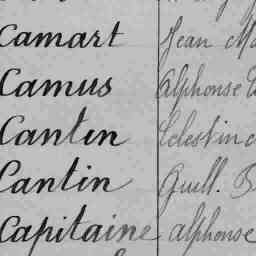 Camart Jean
Camus Alphonse
Canten Celestin
Cantin Guill.
Capitaine alphonse